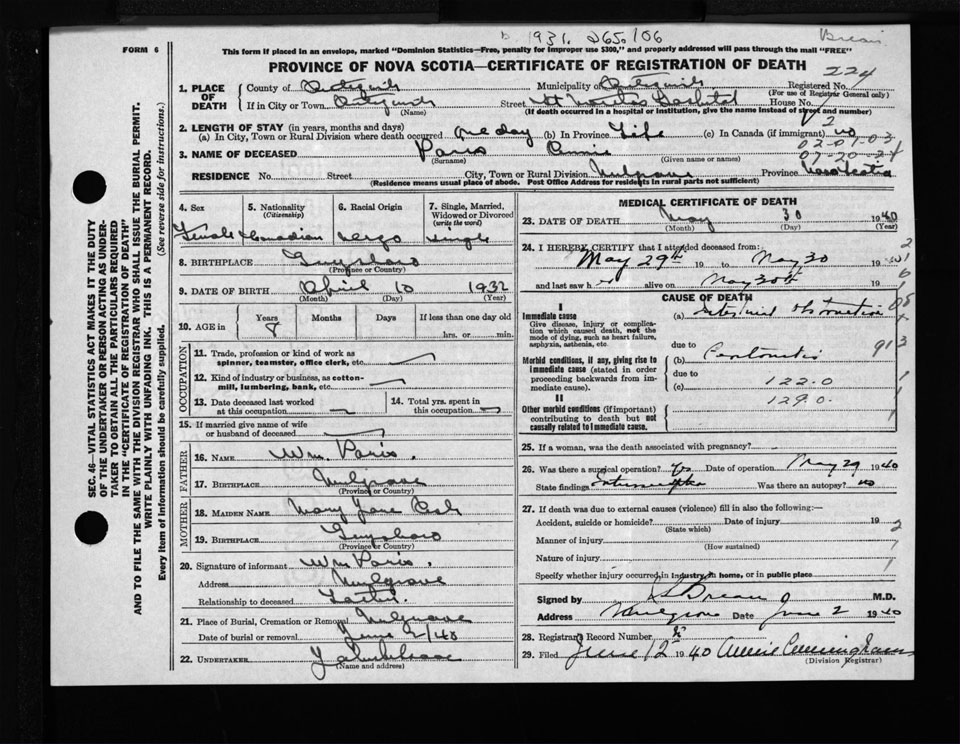 1931. 265106
FORM 6
This form if placed in an envelope, marked "Dominion Statistics—Free, penalty for improper use $300," and properly addressed will pass through the mail "FREE"
PROVINCE OF NOVA SCOTIA—CERTIFICATE OF REGISTRATION OF DEATH
224
1. PLACE OF DEATH
County of Antigonish Municipality of Antigonish Registered No.
(For use of Registrar General only)
If in City or Town Antigonish Street St Marthas Hospital House No.
(Name) (If death occurred in a hospital or institution, give the name instead of street and number)
2. LENGTH OF STAY (in years, months and days)
(a) In City, Town or Rural Division where death occurred one day (b) In Province Life (c) In Canada (if immigrant) no
02-07-03
3. NAME OF DECEASED Paris Annie
(Surname) (Given name or names)
07-20-24
RESIDENCE No. Street City, Town or Rural Division Mulgrave Province Nova Scotia
(Residence means usual place of abode. Post Office Address for residents in rural parts not sufficient)
SEC. 46—VITAL STATISTICS ACT MAKES IT THE DUTY
OF THE UNDERTAKER OR PERSON ACTING AS UNDERTAKER
TO OBTAIN ALL THE PARTICULARS REQUIRED
IN THE "CERTIFICATE OF REGISTRATION OF DEATH"
AND TO FILE THE SAME WITH THE DIVISION REGISTRAR WHO SHALL ISSUE THE BURIAL PERMIT.
WRITE PLAINLY WITH UNFADING INK. THIS IS A PERMANENT RECORD.
Every item of information should be carefully supplied. (See reverse side for instructions.)
4. Sex 5. Nationality 6. Racial Origin 7. Single, Married, Widowed or Divorced
(Citizenship) (write the word)
Female Canadian negro single
8. BIRTHPLACE Guysboro
(Province or Country)
9. DATE OF BIRTH April 10 1932
(Month) (Day) (Year)
10. AGE in Years Months Days If less than one day old
8 hrs. or min.
OCCUPATION
11. Trade, profession or kind of work as
spinner, teamster, office clerk, etc.
12. Kind of industry or business, as cotton-
mill, lumbering, bank, etc.
13. Date deceased last worked
at this occupation
14. Total yrs. spent in
this occupation
15. If married give name of wife
or husband of deceased
FATHER
16. NAME Wm. Paris.
17. BIRTHPLACE Mulgrave
(Province or Country)
MOTHER
18. MAIDEN NAME Mary Jane
19. BIRTHPLACE Guysboro
(Province or Country)
20. Signature of informant Wm Paris.
Address Mulgrave
Relationship to deceased Father.
21. Place of Burial, Cremation or Removal Mulgrave
Date of burial or removal June 2/40
22. UNDERTAKER
(Name and address)
MEDICAL CERTIFICATE OF DEATH
23. DATE OF DEATH May 30 1940
(Month) (Day) (Year)
24. I HEREBY CERTIFY that I attended deceased from:
May 29th 19 to May 30 1940
and last saw her alive on May 30th 19
CAUSE OF DEATH
I
Immediate cause
Give disease, injury or complication
which caused death, not the
mode of dying, such as heart failure,
asphyxia, asthenia, etc.
(a) Intestinal obstruction
due to
Morbid conditions, if any, giving rise to
immediate cause (stated in order
proceeding backwards from immediate
cause).
(b) Peritonitis
due to
(c) 122.0
129.0
II
Other morbid conditions (if important)
contributing to death but not
causally related to immediate cause.
25. If a woman, was the death associated with pregnancy?
26. Was there a surgical operation? Yes Date of operation May 29 1940
State findings Was there an autopsy? no
27. If death was due to external causes (violence) fill in also the following:—
Accident, suicide or homicide? Date of injury 19
(State which)
Manner of injury
(How sustained)
Nature of injury
Specify whether injury occurred in industry, in home, or in public place
Signed by M.D.
Address Mulgrave Date June 2 1940
28. Registrars Record Number
29. Filed June 12 1940 Annie Cunningham
(Division Registrar)